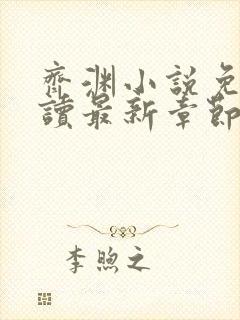 齊淵小說免
讀最新章節
李煦之